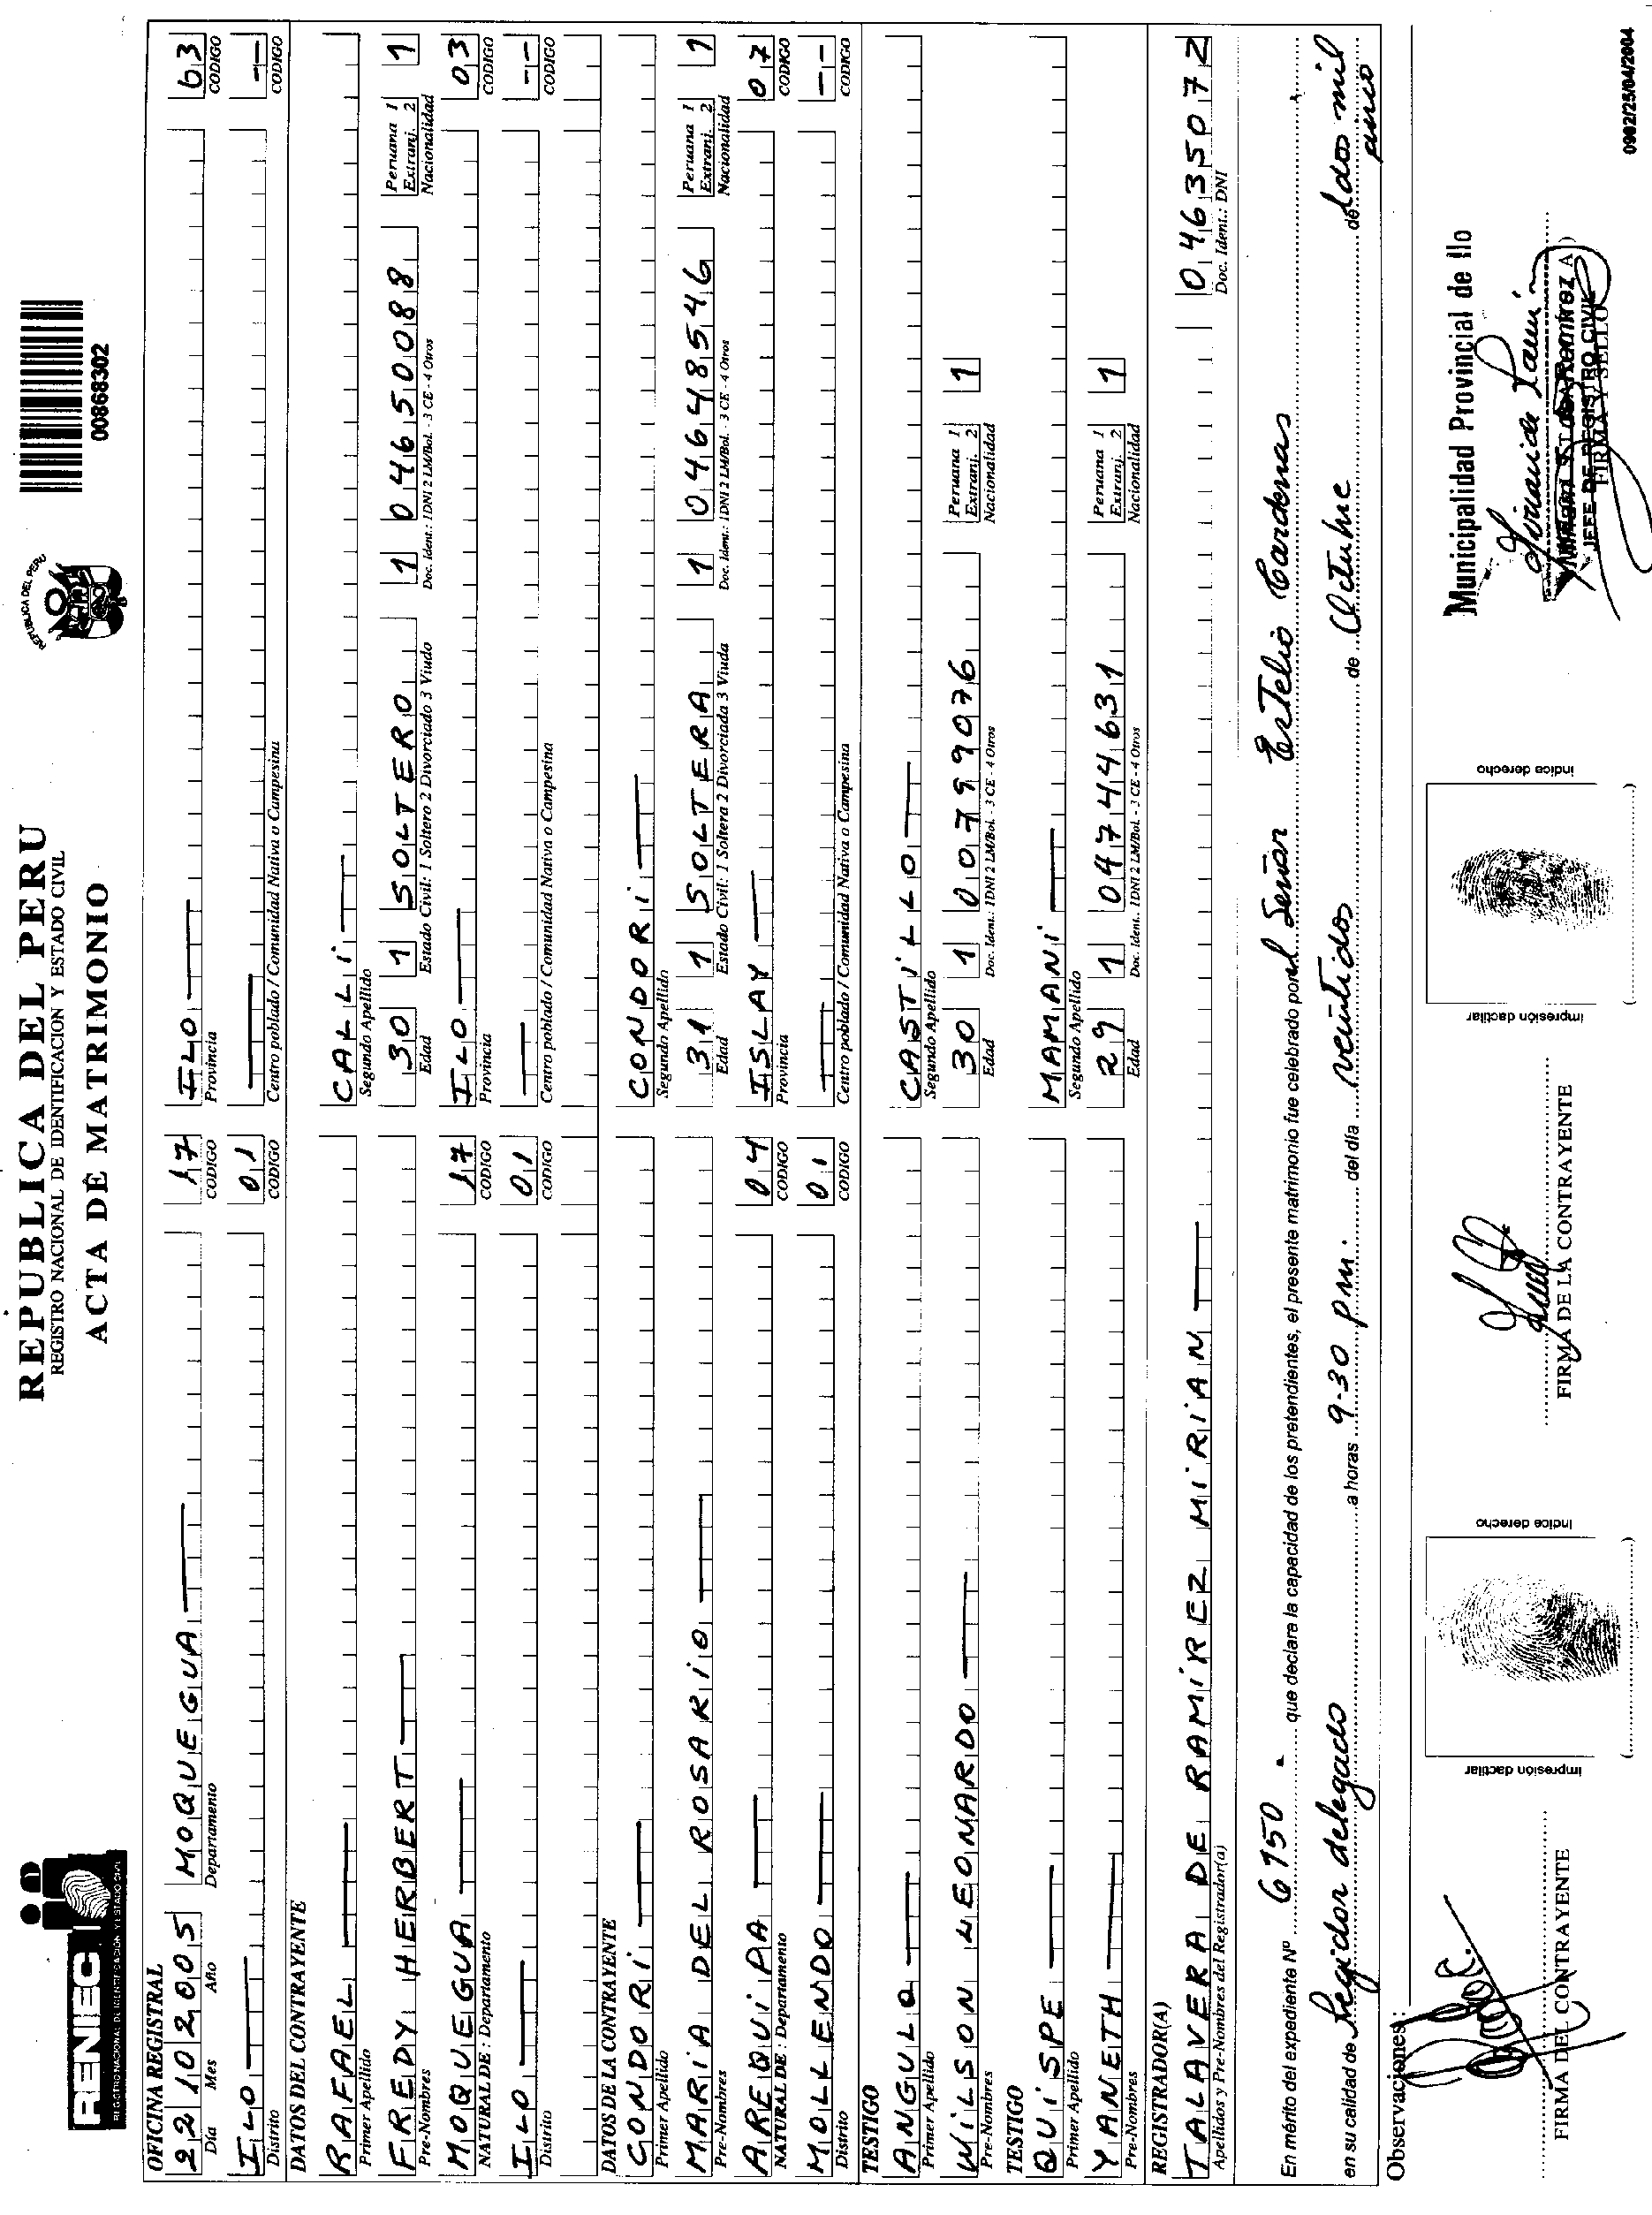 RENIEC
REGISTRO NACIONAL DE IDENTIFICACION Y ESTADO CIVIL
REPUBLICA DEL PERU
REGISTRO NACIONAL DE IDENTIFICACION Y ESTADO CIVIL
ACTA DE MATRIMONIO
REPUBLICA DEL PERU
00868302
OFICINA REGISTRAL
22 10 2005 MOQUEGUA 17 ILO 03
Día Mes Año Departamento CODIGO Provincia CODIGO
ILO 01 --
Distrito CODIGO Centro poblado / Comunidad Nativa o Campesina CODIGO
DATOS DEL CONTRAYENTE
RAFAEL CALLI
Primer Apellido Segundo Apellido
FREDY HERBERT 30 1 SOLTERO 1 04650088 Peruana 1 Extranj. 2 1
Pre-Nombres Edad Estado Civil: 1 Soltero 2 Divorciado 3 Viudo Doc. Ident.: 1DNI 2 LM/Bol. - 3 CE - 4 Otros Nacionalidad
MOQUEGUA 17 ILO 03
NATURAL DE : Departamento CODIGO Provincia CODIGO
ILO 01 --
Distrito CODIGO Centro poblado / Comunidad Nativa o Campesina CODIGO
DATOS DE LA CONTRAYENTE
CONDORI CONDORI
Primer Apellido Segundo Apellido
MARIA DEL ROSARIO 31 1 SOLTERA 1 04648546 Peruana 1 Extranj. 2 1
Pre-Nombres Edad Estado Civil: 1 Soltera 2 Divorciada 3 Viuda Doc. Ident.: 1DNI 2 LM/Bol. - 3 CE - 4 Otros Nacionalidad
AREQUIPA 04 ISLAY 07
NATURAL DE : Departamento CODIGO Provincia CODIGO
MOLLENDO 01 --
Distrito CODIGO Centro poblado / Comunidad Nativa o Campesina CODIGO
TESTIGO
ANGULO CASTILLO
Primer Apellido Segundo Apellido
WILSON LEONARDO 30 1 00799076 Peruana 1 Extranj. 2 1
Pre-Nombres Edad Doc. Ident.: 1DNI 2 LM/Bol. - 3 CE - 4 Otros Nacionalidad
TESTIGO
QUISPE MAMANI
Primer Apellido Segundo Apellido
YANETH 29 1 04744631 Peruana 1 Extranj. 2 1
Pre-Nombres Edad Doc. Ident.: 1DNI 2 LM/Bol. - 3 CE - 4 Otros Nacionalidad
REGISTRADOR(A)
TALAVERA DE RAMIREZ MIRIAN 04635072
Apellidos y Pre-Nombres del Registrador(a) Doc. Ident.: DNI
En mérito del expediente Nº 6750 - que declara la capacidad de los pretendientes, el presente matrimonio fue celebrado por el Señor Ertelio Cardenas
en su calidad de Regidor delegado a horas 9-30 pm. del día veintidos de Octubre de dos mil cinco
Observaciones:
Municipalidad Provincial de Ilo
JEFE DE REGISTRO CIVIL
FIRMA Y SELLO
FIRMA DEL CONTRAYENTE
impresión dactilar
indice derecho
FIRMA DE LA CONTRAYENTE
impresión dactilar
indice derecho
0902/25/04/2004